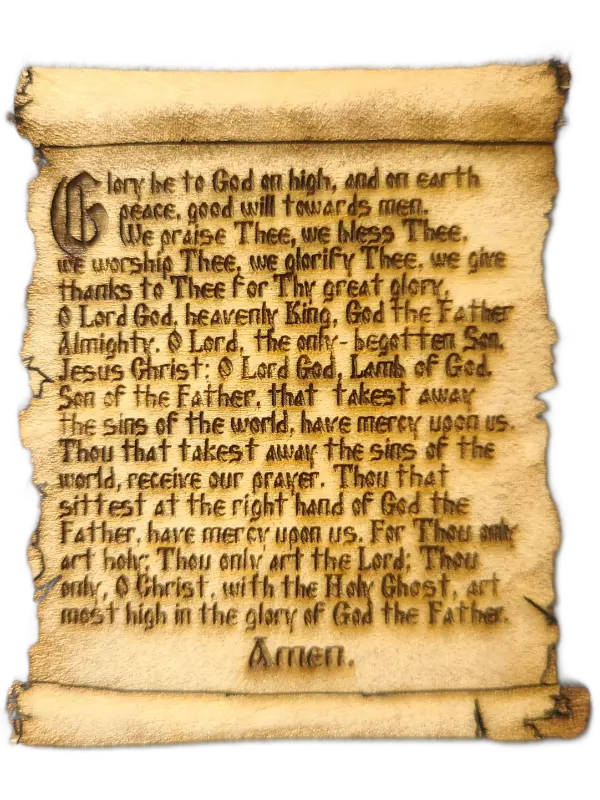 Glory be to God on high, and on earth
peace, good will towards men.
We praise Thee, we bless Thee,
we worship Thee, we glorify Thee, we give
thanks to Thee for Thy great glory,
O Lord God, heavenly King, God the Father
Almighty. O Lord, the only-begotten Son,
Jesus Christ; O Lord God, Lamb of God,
Son of the Father, that takest away
the sins of the world, have mercy upon us.
Thou that takest away the sins of the
world, receive our prayer. Thou that
sittest at the right hand of God the
Father, have mercy upon us. For Thou only
art holy; Thou only art the Lord; Thou
only, O Christ, with the Holy Ghost, art
most high in the glory of God the Father.
Amen.